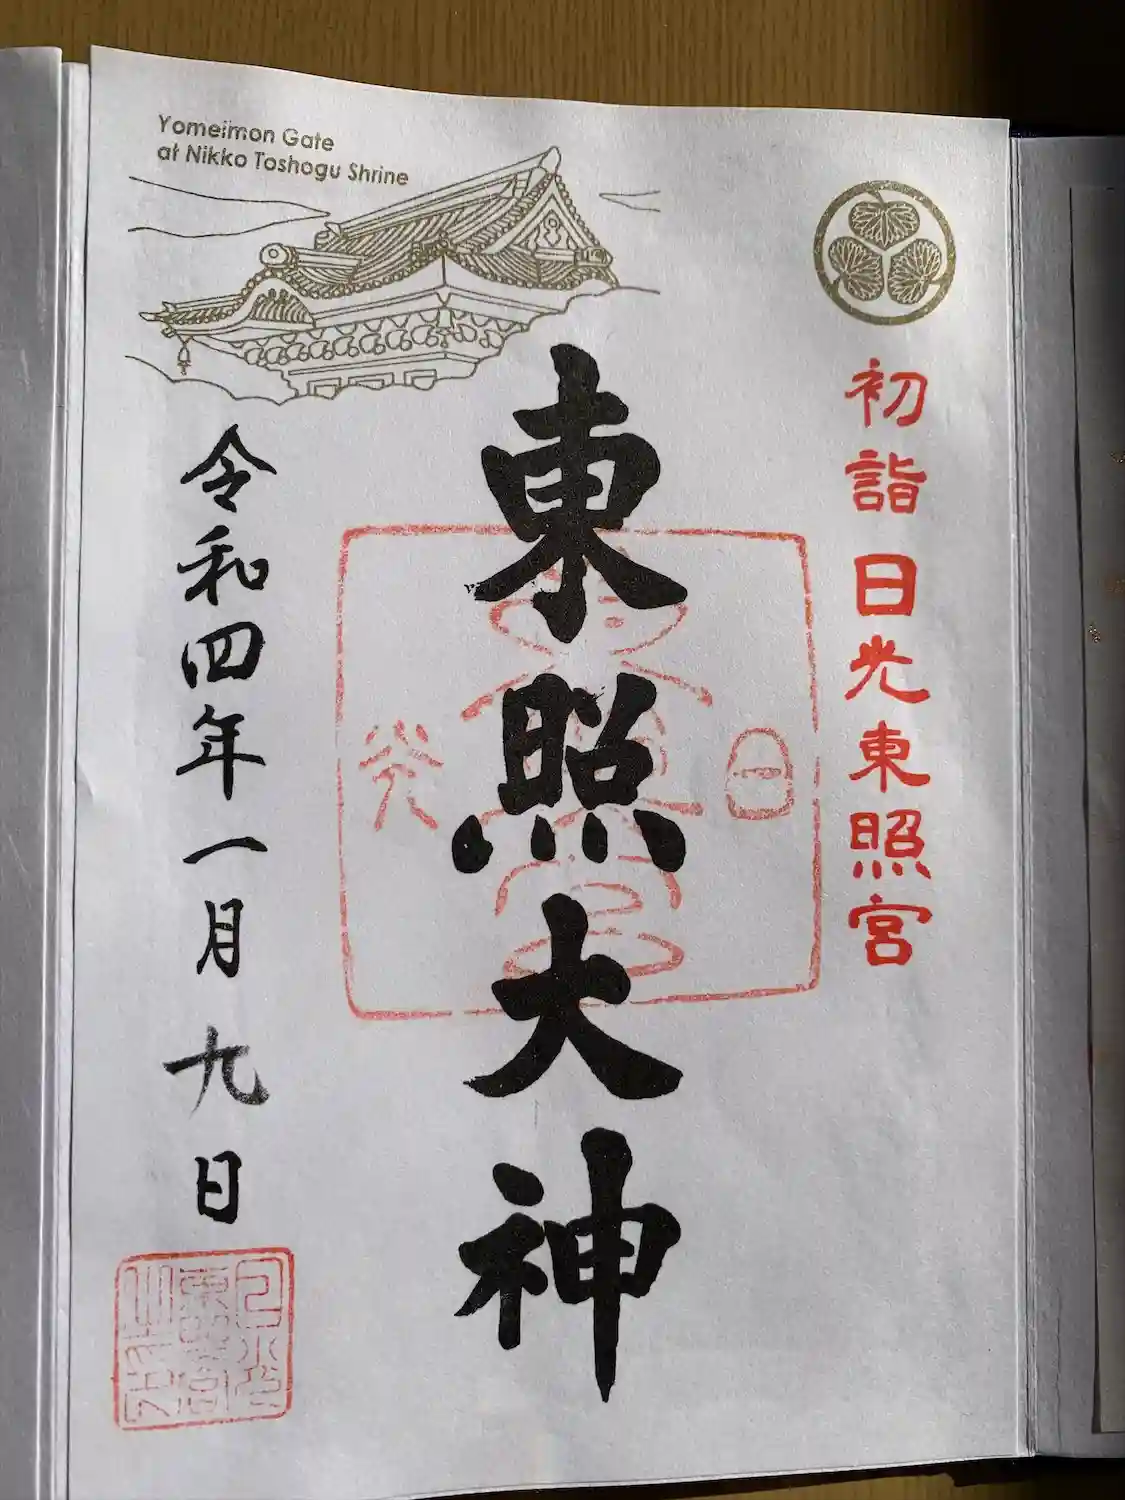 Yomeimon Gate
at Nikko Toshogu Shrine
初詣 日光東照宮
東照大神
令和四年一月九日
日 光